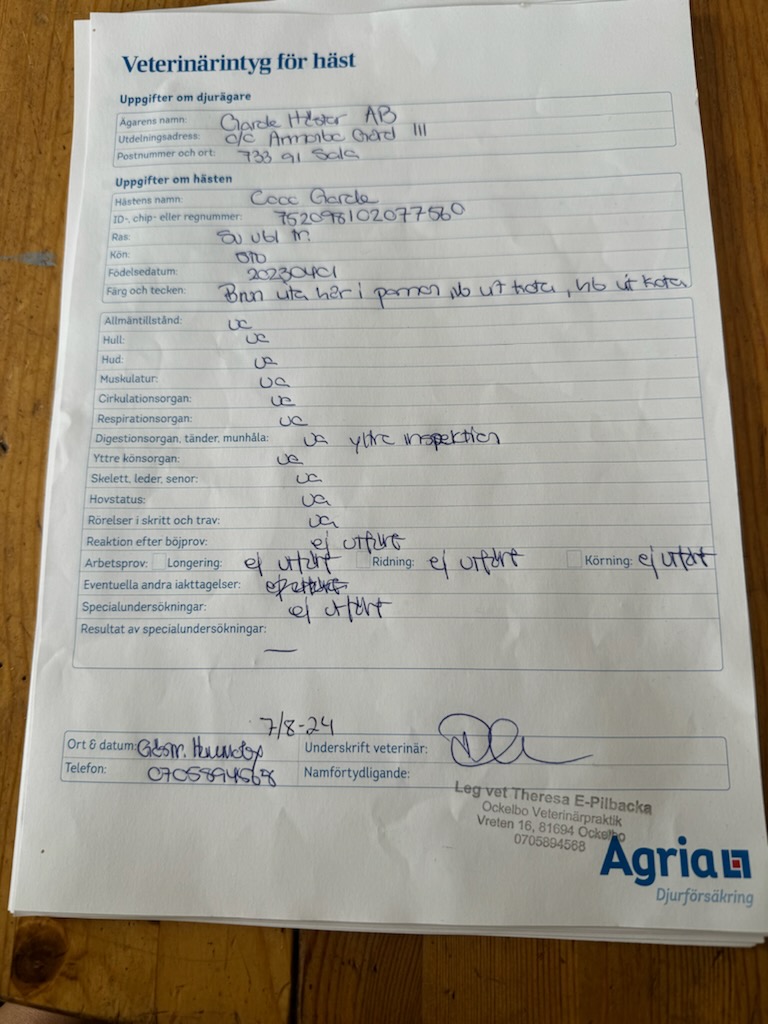 Veterinärintyg för häst
Uppgifter om djurägare
Ägarens namn: Garde Hästar AB
Utdelningsadress: c/o Gård III
Postnummer och ort: 733 91 Sala
Uppgifter om hästen
Hästens namn: Coco Garde
ID-, chip- eller regnummer: 752098102077560
Ras: Sv vbl
Kön: sto
Födelsedatum: 20230401
Färg och tecken: Brun vita hår i pannan, vb vit kota, hb vit kota
Allmäntillstånd: ua
Hull: ua
Hud: ua
Muskulatur: ua
Cirkulationsorgan: ua
Respirationsorgan: ua
Digestionsorgan, tänder, munhåla: ua yttre inspektion
Yttre könsorgan: ua
Skelett, leder, senor: ua
Hovstatus: ua
Rörelser i skritt och trav: ua
Reaktion efter böjprov: ej utfört
Arbetsprov: Longering: ej utfört Ridning: ej utfört Körning: ej utfört
Eventuella andra iakttagelser:
Specialundersökningar: ej utfört
Resultat av specialundersökningar:
—
7/8-24
Ort & datum: Underskrift veterinär:
Telefon: 0705894568 Namförtydligande:
Leg vet Theresa E-Pilbacka
Ockelbo Veterinärpraktik
Vreten 16, 81694 Ockelbo
0705894568
Agria
Djurförsäkring